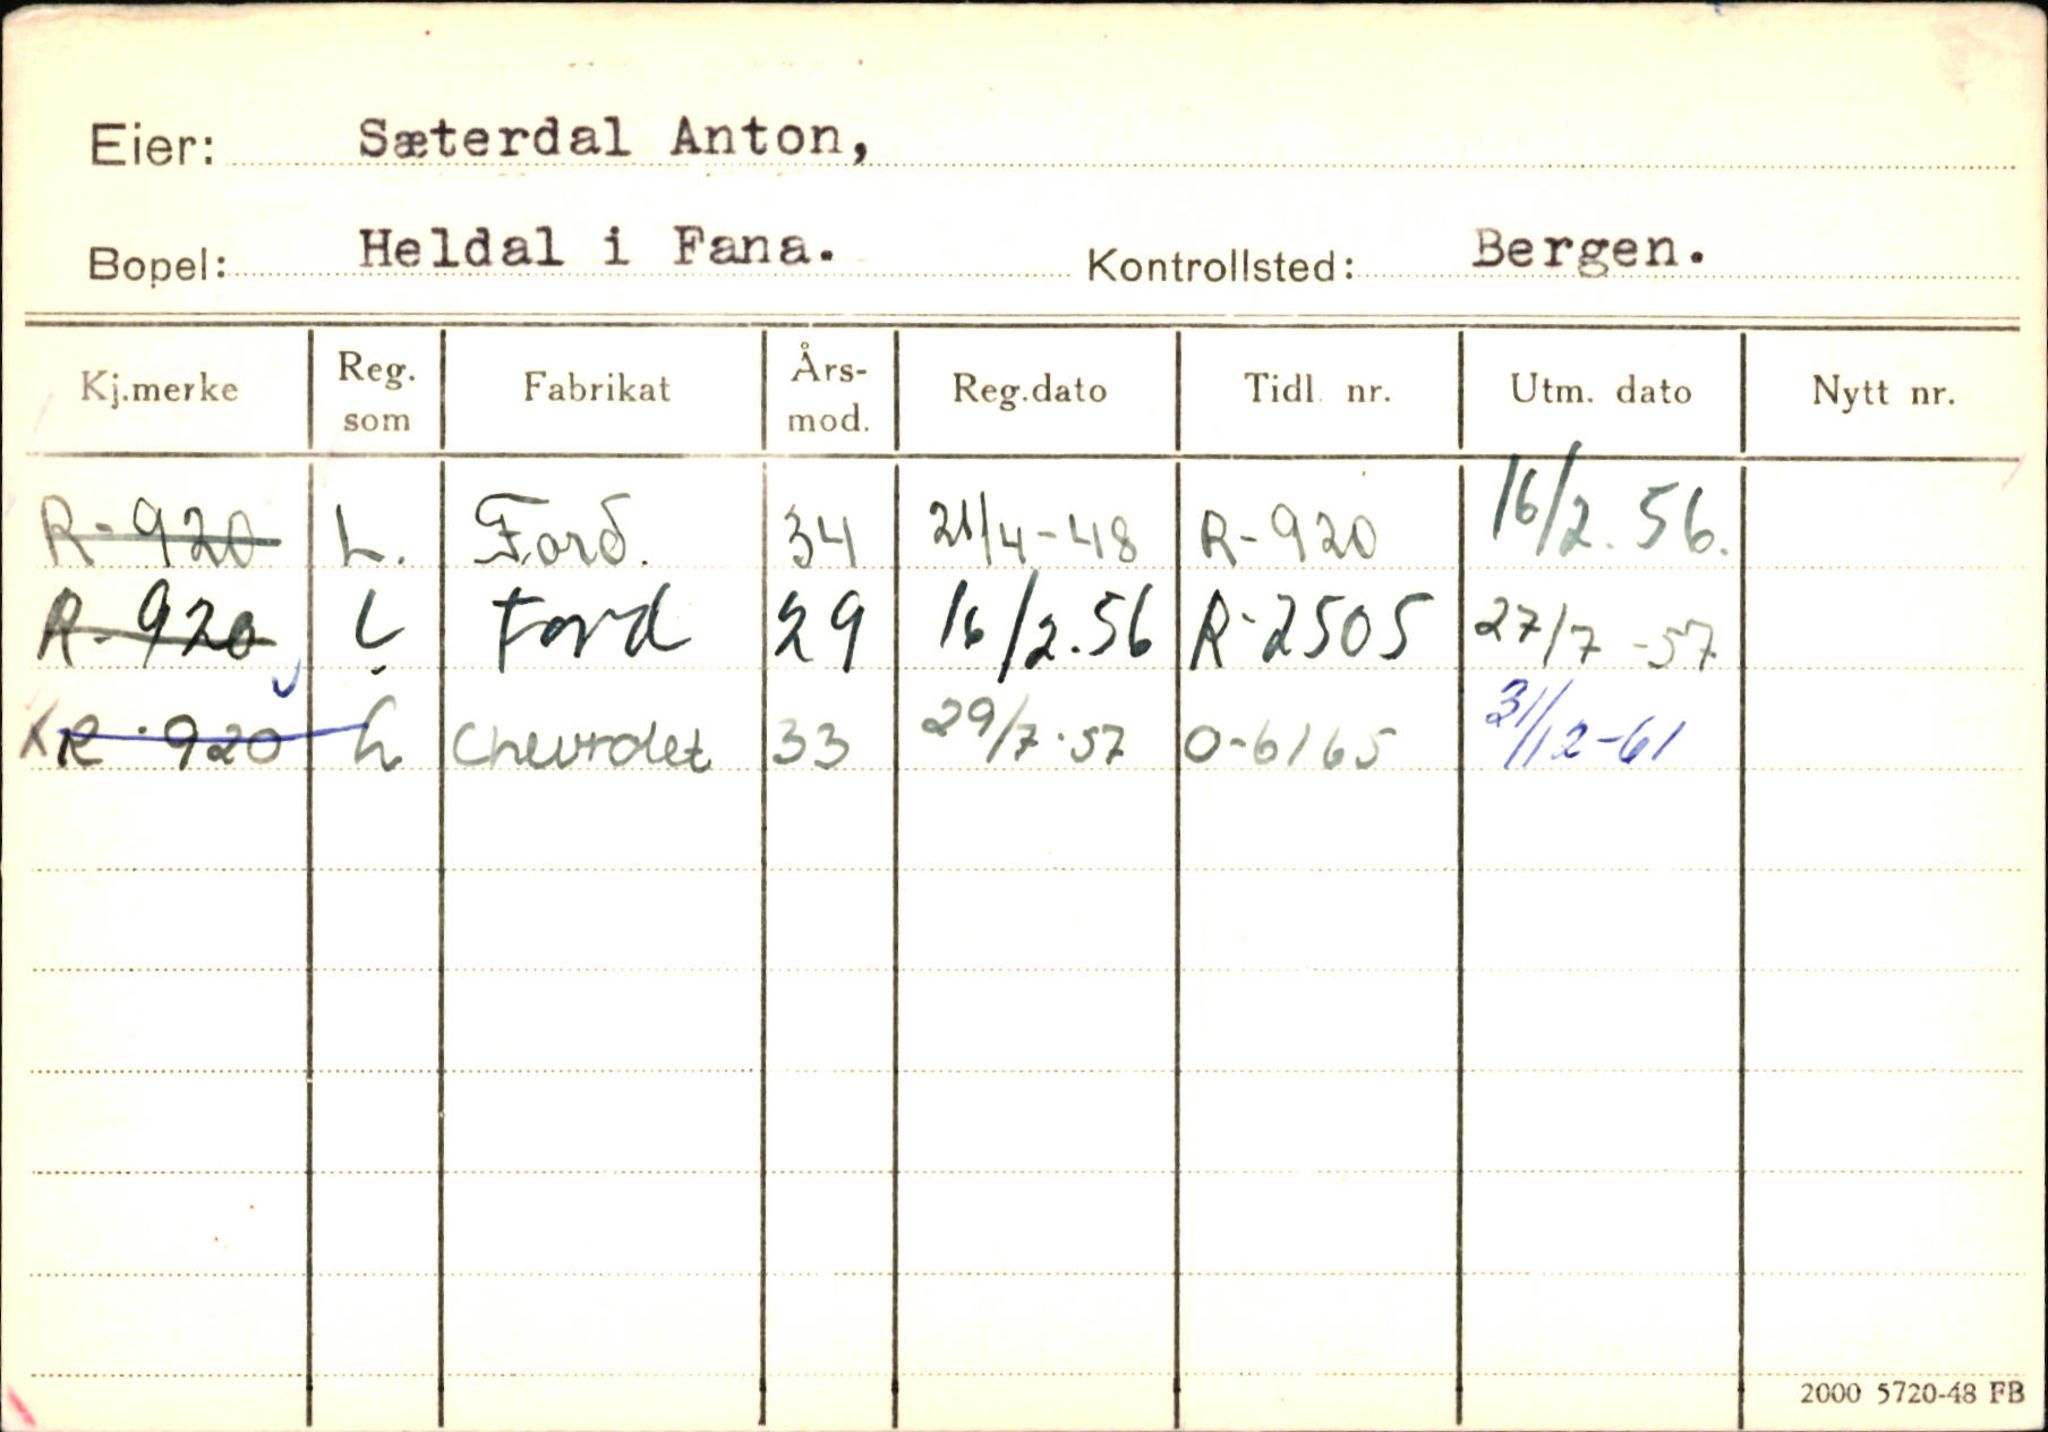 Eier: Sæterdal Anton,
Bopel: Heldal i Fana. Kontrollsted: Bergen.
Kj.merke Reg. som Fabrikat Års-mod. Reg.dato Tidl. nr. Utm. dato Nytt nr.
R-920 L. Ford. 34 21/4-48 R-920 16/2.56.
R-920 L Ford 29 16/2.56 R-2505 27/7-57
X R-920 L Chevrolet 33 29/7-57 O-6165 31/12-61
2000 5720-48 FB